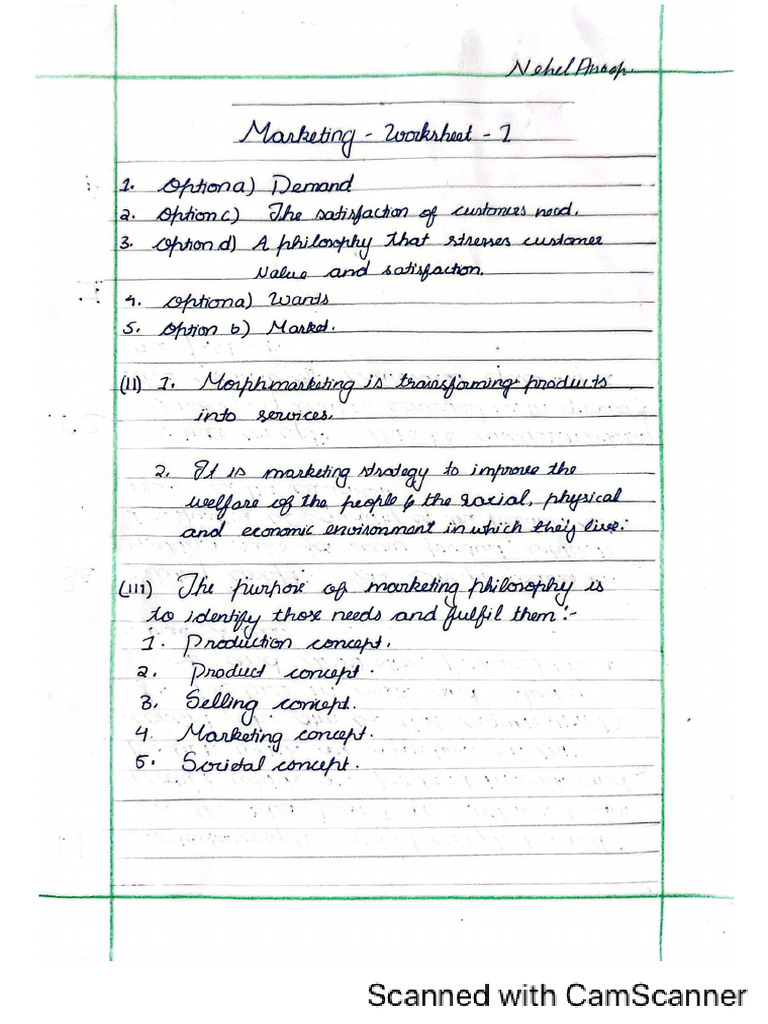 Nehel Anoop
Marketing - Worksheet - 1
1. Option a) Demand
2. Option c) The satisfaction of customers need.
3. Option d) A philosophy that stresses customer
Value and satisfaction.
4. Option a) Wants
5. Option b) Market.
(II) 1. Morphmarketing is transforming products
into services.
2. It is marketing strategy to improve the
welfare of the people & the social, physical
and economic environment in which they live.
(III) The purpose of marketing philosophy is
to identify those needs and fulfil them:-
1. Production concept.
2. Product concept.
3. Selling concept.
4. Marketing concept.
5. Societal concept.
Scanned with CamScanner